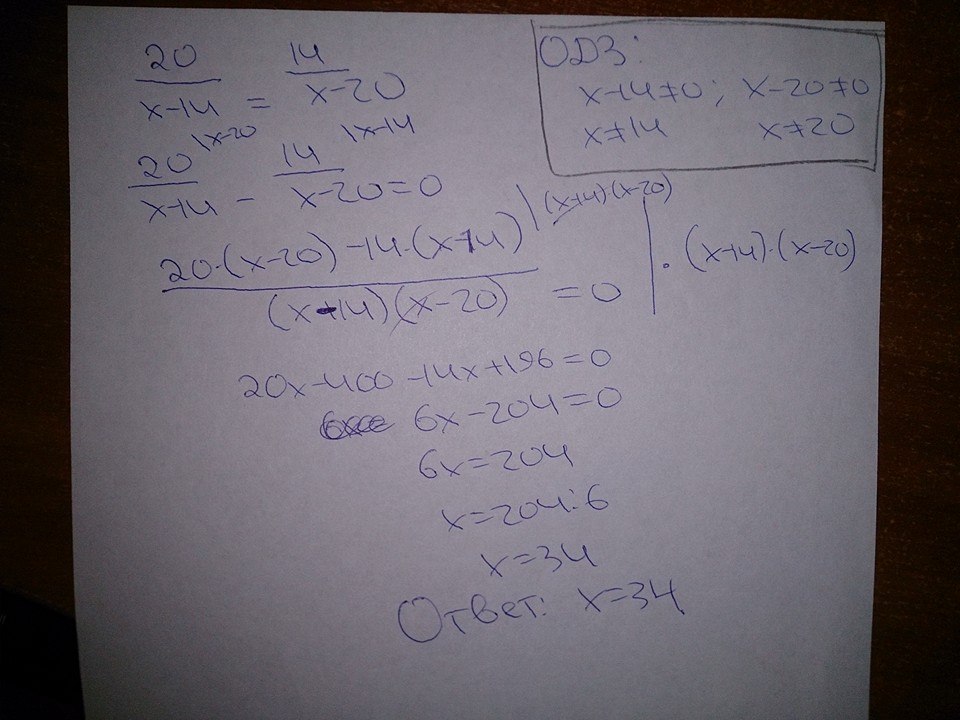 20/(x-14) = 14/(x-20)
ОДЗ:
x-14≠0; x-20≠0
x≠14 x≠20
20/(x-14) |x-20 - 14/(x-20) |x-14 =0
(20·(x-20)-14·(x-14))/((x-14)(x-20)) |(x-14)(x-20) =0 | ·(x-14)·(x-20)
20x-400-14x+196=0
6x-204=0
6x=204
x=204:6
x=34
Ответ: x=34